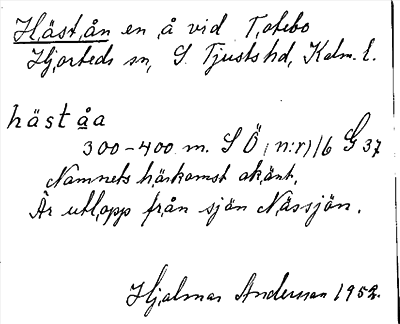 Häst,ån en å vid Totebo
Hjorteds sn, S. Tjusts hd, Kalm. l.
häståa
300-400 m. S Ö (n:r) 116 G 37
Namnets härkomst okänt.
Är utlopp från sjön Nässjön.
Hjalmar Andersson 1952.